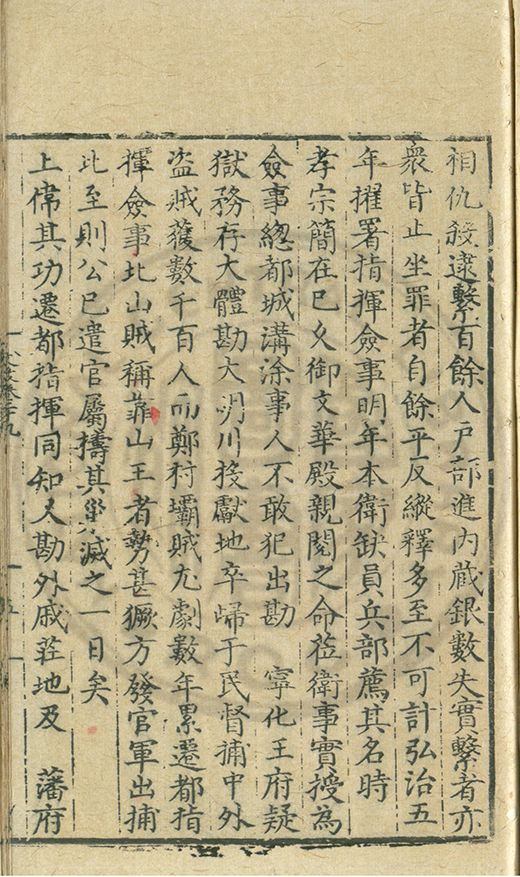 相仇殺逮繫百餘人戶部進內蔵銀數失實繫者亦
衆皆止坐罪者自餘平反縱釋多至不可計弘治五
年擢署指揮僉事明年本衛缺員兵部薦其名時
孝宗簡在已久御文華殿親閱之命莅衛事實授為
僉事緫都城溝涂事人不敢犯出勘　寧化王府疑
獄務存大體勘大明川投獻地卒歸于民督捕中外
盗賊獲數千百人而鄭村壩賊尤劇數年累遷都指
揮僉事北山賊稱靠山王者勢甚獗方發官軍出捕
比至則公已遣官屬擣其巢滅之一日矣
上偉其功遷都指揮同知又勘外戚莊地及　藩府